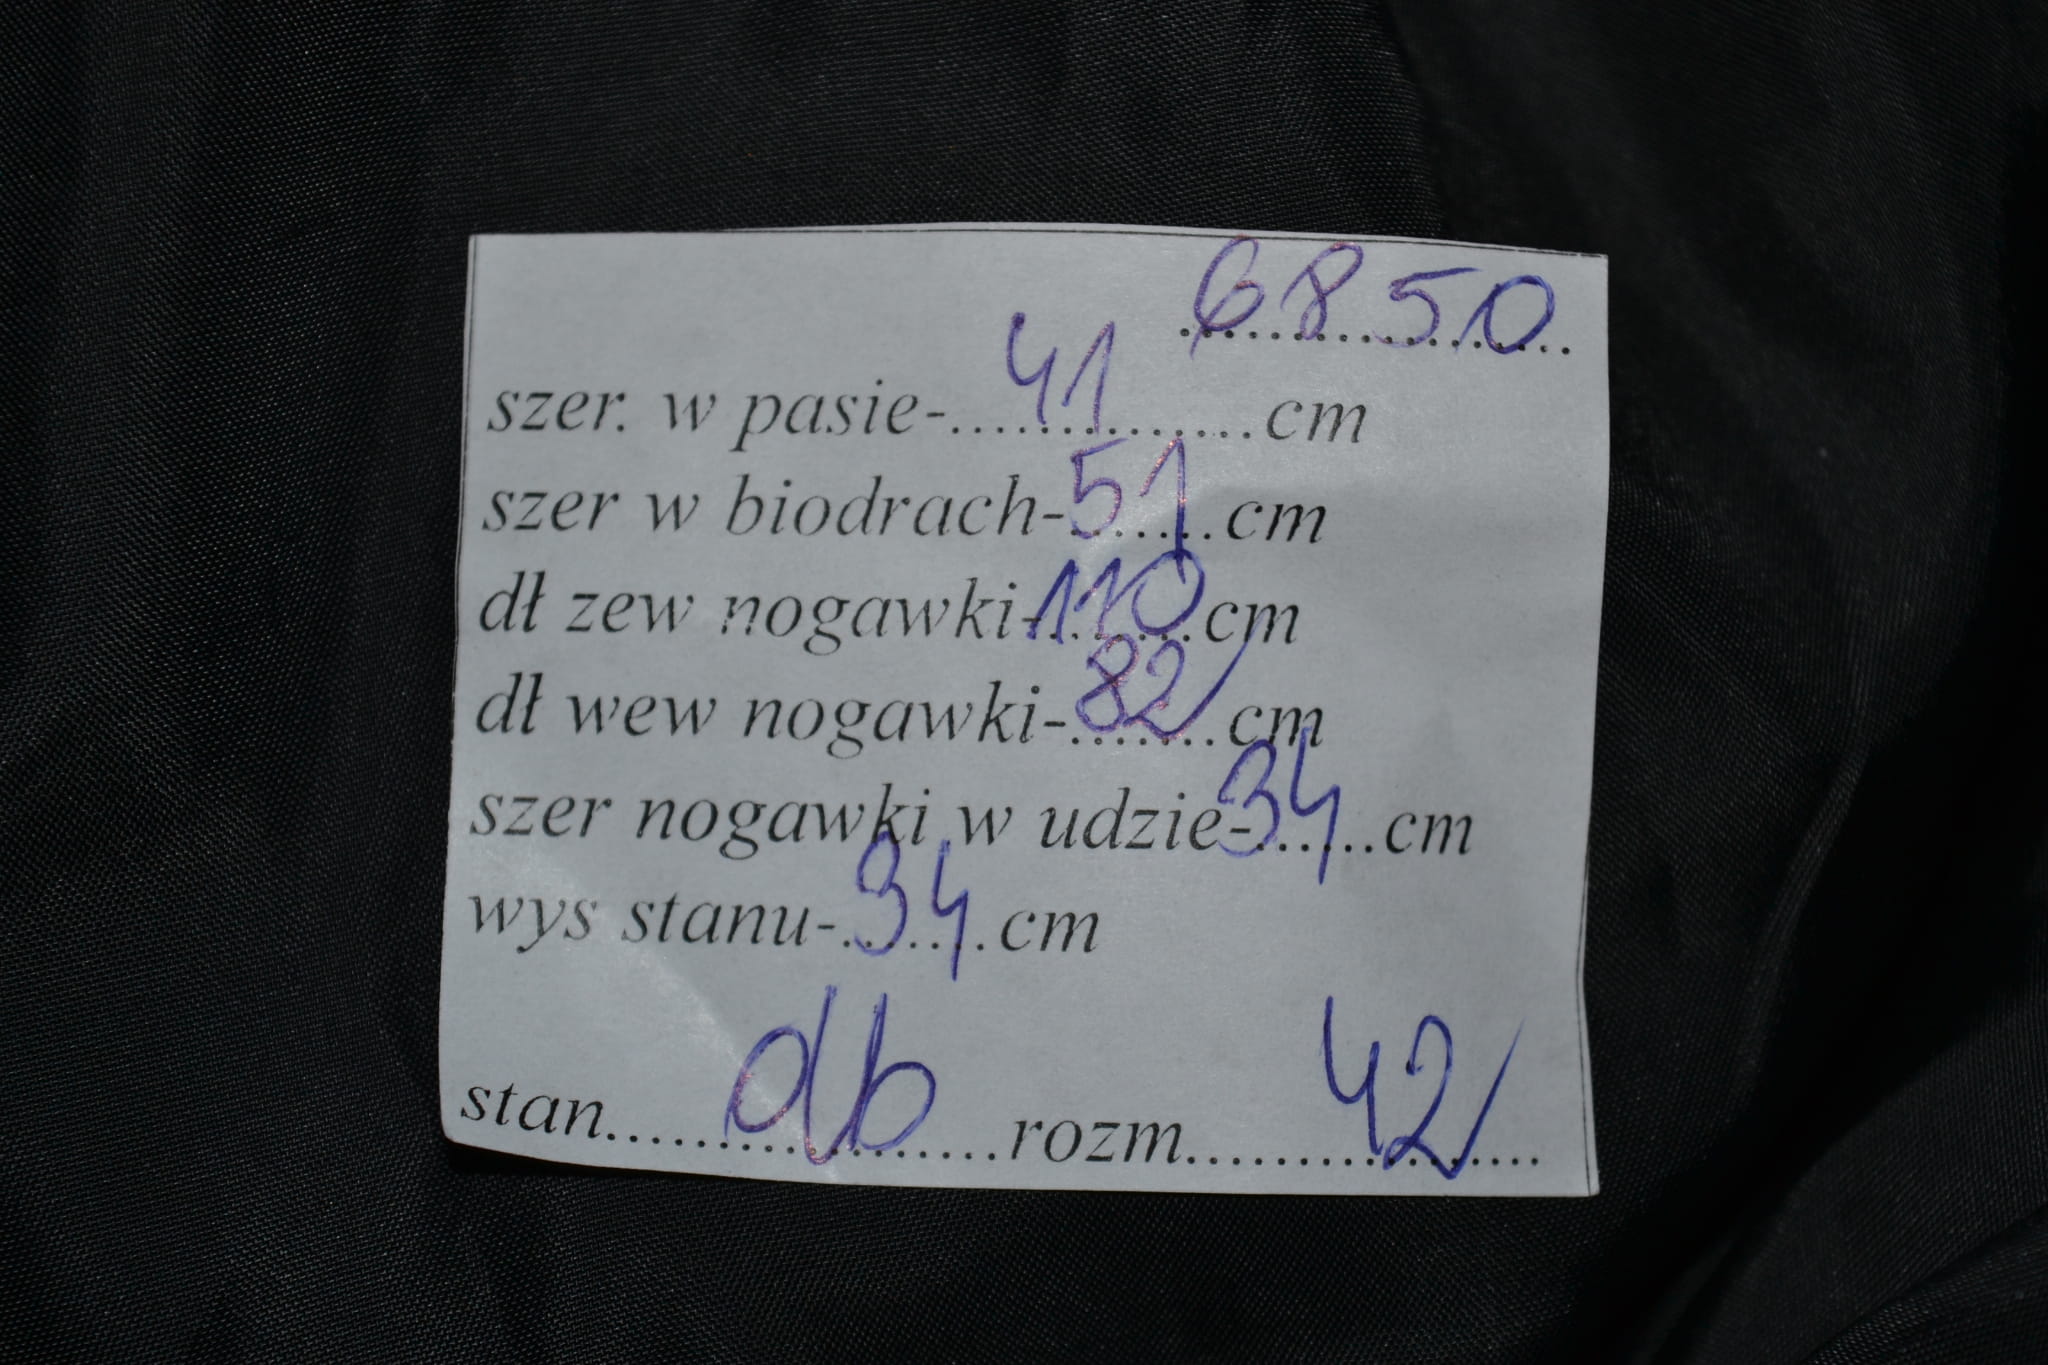 6850
szer. w pasie-....41....cm
szer w biodrach-51....cm
dł zew nogawki-110...cm
dł wew nogawki-82...cm
szer nogawki w udzie-34...cm
wys stanu-34.cm
stan......db......rozm......42......